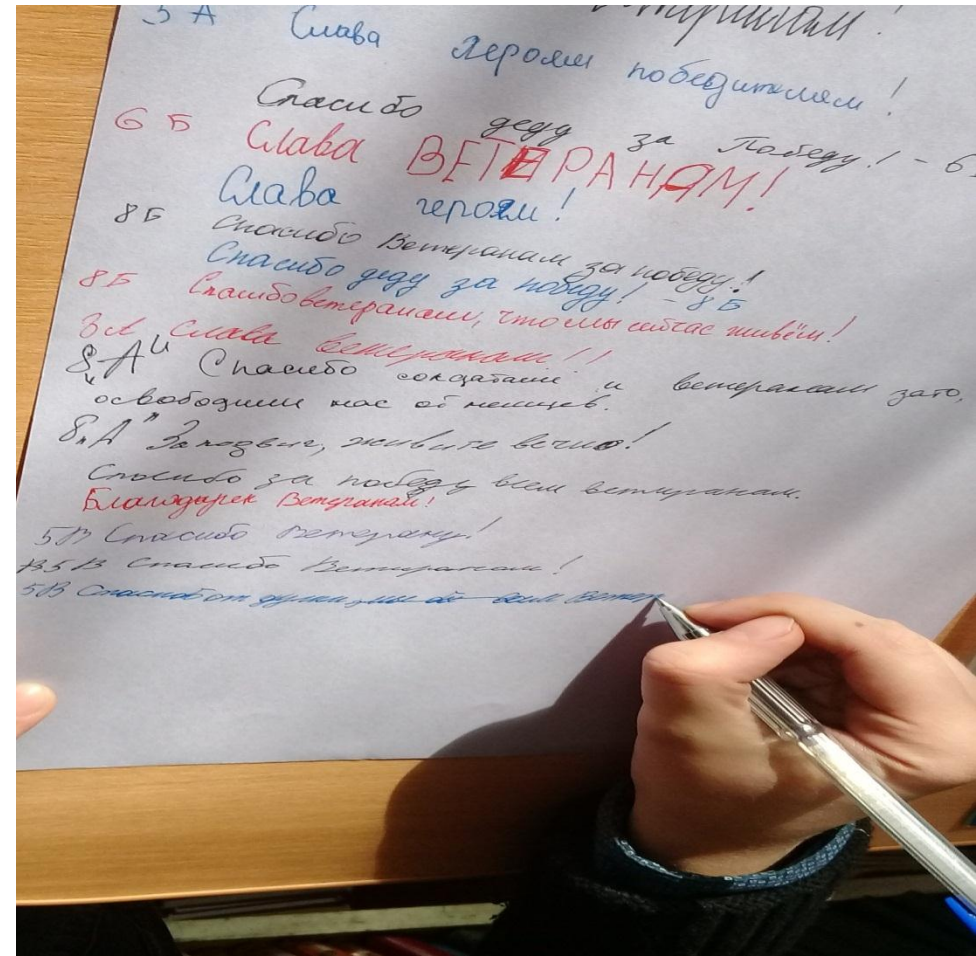 Ветеранам!
5 А Слава героям победителям!
Спасибо деду за Победу! - 6
6 Б Слава ВЕТЕРАНАМ!
Слава героям!
8 Б Спасибо Ветеранам за победу!
Спасибо деду за победу! - 8 Б
8 Б Спасибо ветеранам, что мы сейчас живём!
8 А Слава ветеранам!!
8 "А" Спасибо солдатам и ветеранам зато,
освободили нас от немцев.
8 "А" За подвиг, живите вечно!
Спасибо за победу всем ветеранам.
Ветеранам!
5В Спасибо Ветерану!
В 5 В Спасибо Ветеранам!
5В Спасиб от души, всем Ветер